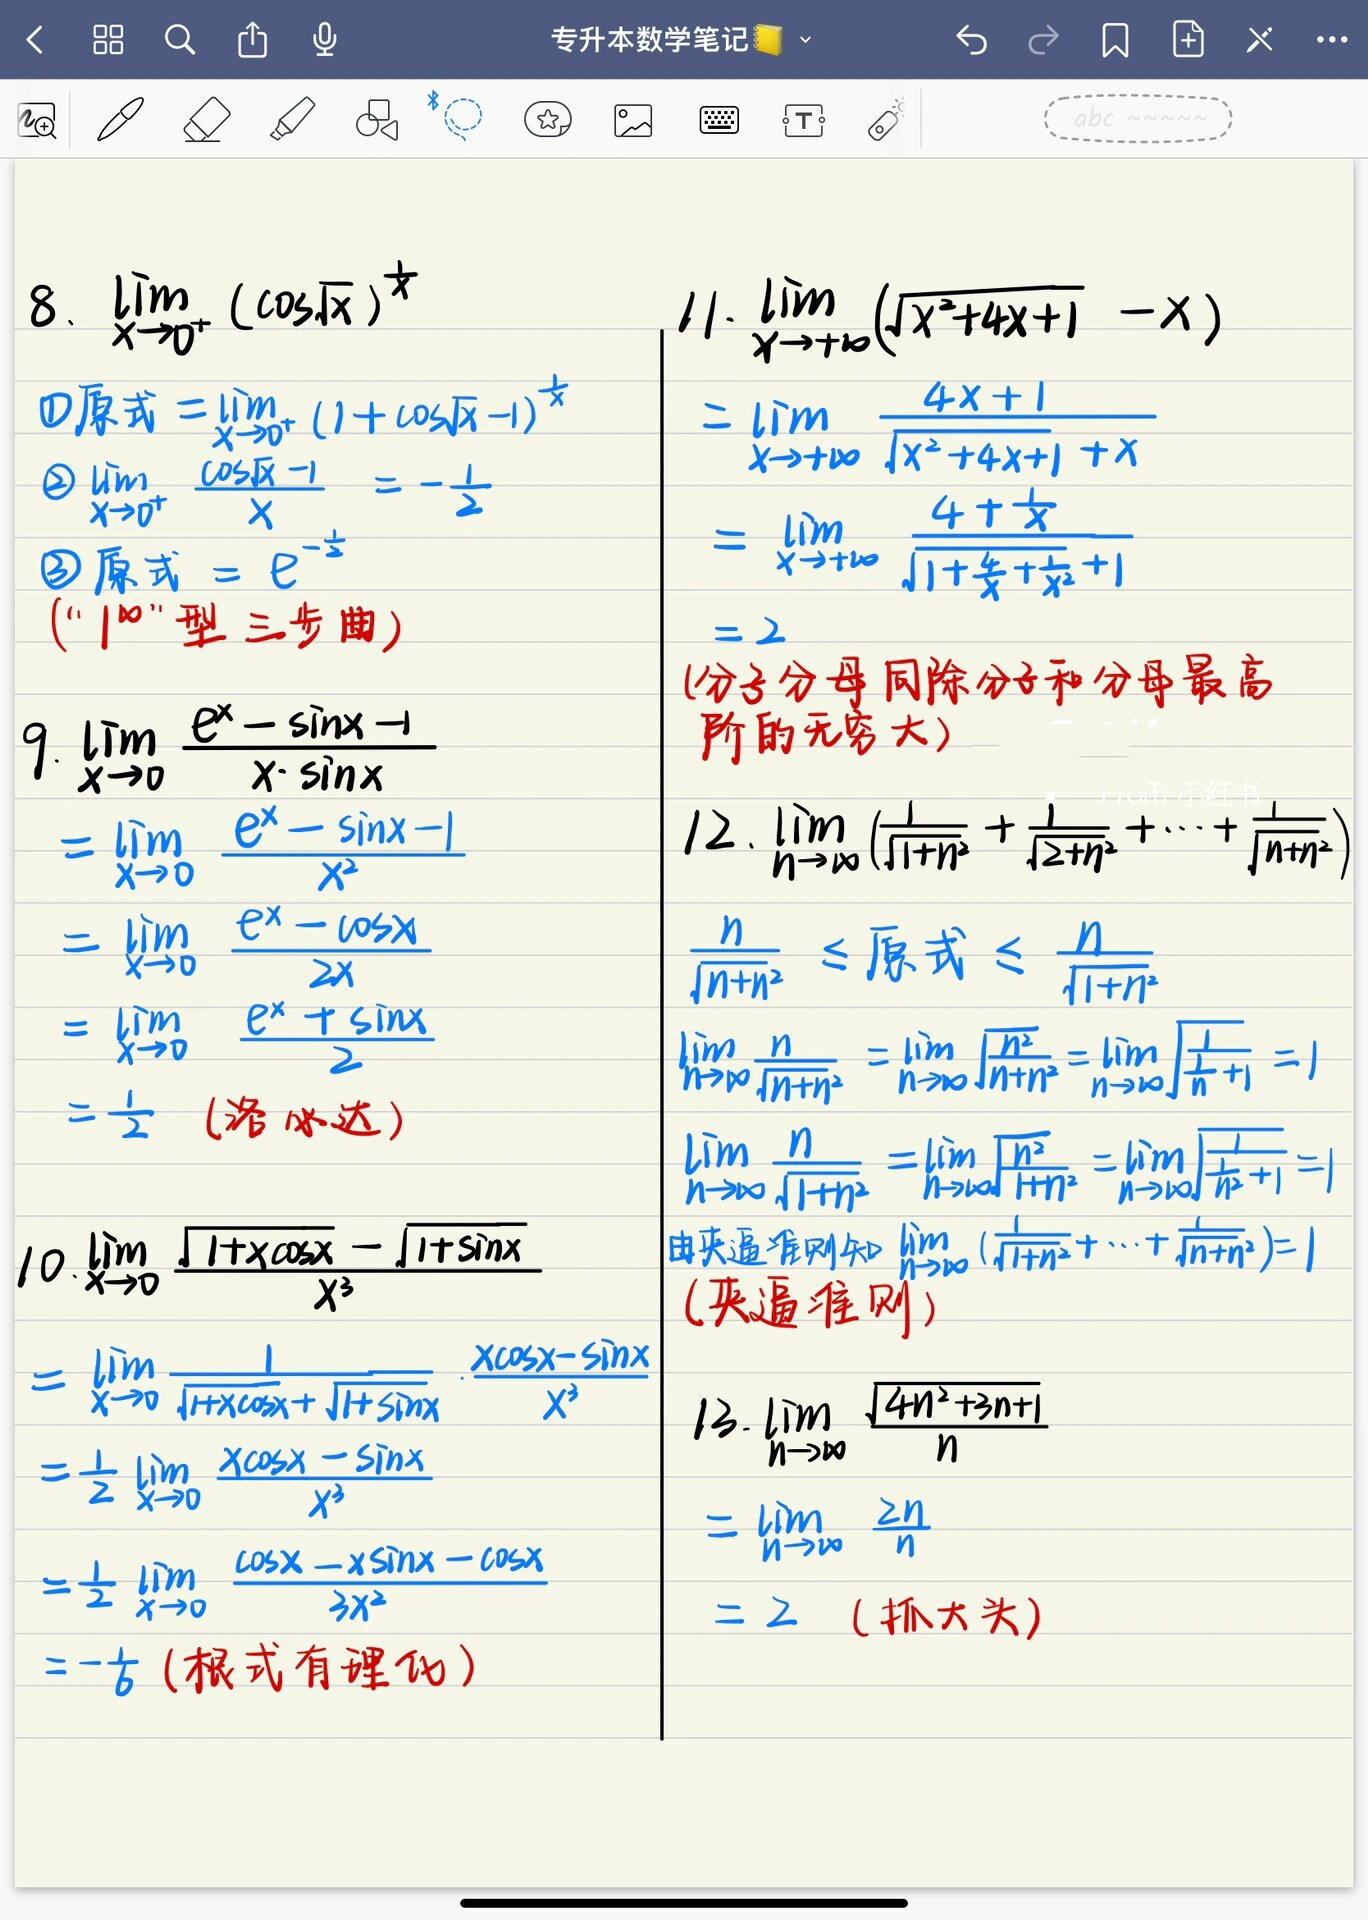 专升本数学笔记
abc
8. lim x→0⁺ (cos√x)^(1/x)
①原式 = lim x→0⁺ (1+cos√x-1)^(1/x)
② lim x→0⁺ (cos√x -1)/x = -1/2
③原式 = e^(-1/2)
("1^∞"型 三步曲)
9. lim x→0 (eˣ - sinx -1)/(x·sinx)
= lim x→0 (eˣ - sinx -1)/x²
= lim x→0 (eˣ - cosx)/2x
= lim x→0 (eˣ + sinx)/2
= 1/2 (洛必达)
10. lim x→0 (√(1+xcosx) - √(1+sinx))/x³
= lim x→0 1/(√(1+xcosx) + √(1+sinx)) · (xcosx-sinx)/x³
= 1/2 lim x→0 (xcosx - sinx)/x³
= 1/2 lim x→0 (cosx - xsinx - cosx)/3x²
= -1/6 (根式有理化)
11. lim x→+∞ (√(x²+4x+1) - x)
= lim x→+∞ (4x+1)/(√(x²+4x+1) + x)
= lim x→+∞ (4+1/x)/(√(1+4/x+1/x²) + 1)
= 2
(分子分母同除分子和分母最高
阶的无穷大)
小红书
12. lim n→∞ (1/√(1+n²) + 1/√(2+n²) + ··· + 1/√(n+n²))
n/√(n+n²) ≤ 原式 ≤ n/√(1+n²)
lim n→∞ n/√(n+n²) = lim n→∞ √(n²/(n+n²)) = lim n→∞ √(1/(1/n+1)) = 1
lim n→∞ n/√(1+n²) = lim n→∞ √(n²/(1+n²)) = lim n→∞ √(1/(1/n²+1)) = 1
由夹逼准则知 lim n→∞ (1/√(1+n²) + ··· + 1/√(n+n²)) = 1
(夹逼准则)
13. lim n→∞ √(4n²+3n+1)/n
= lim n→∞ 2n/n
= 2 (抓大头)